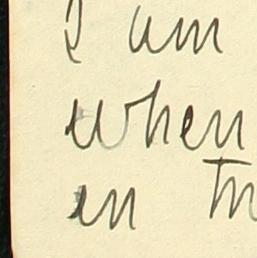 I am
when
in